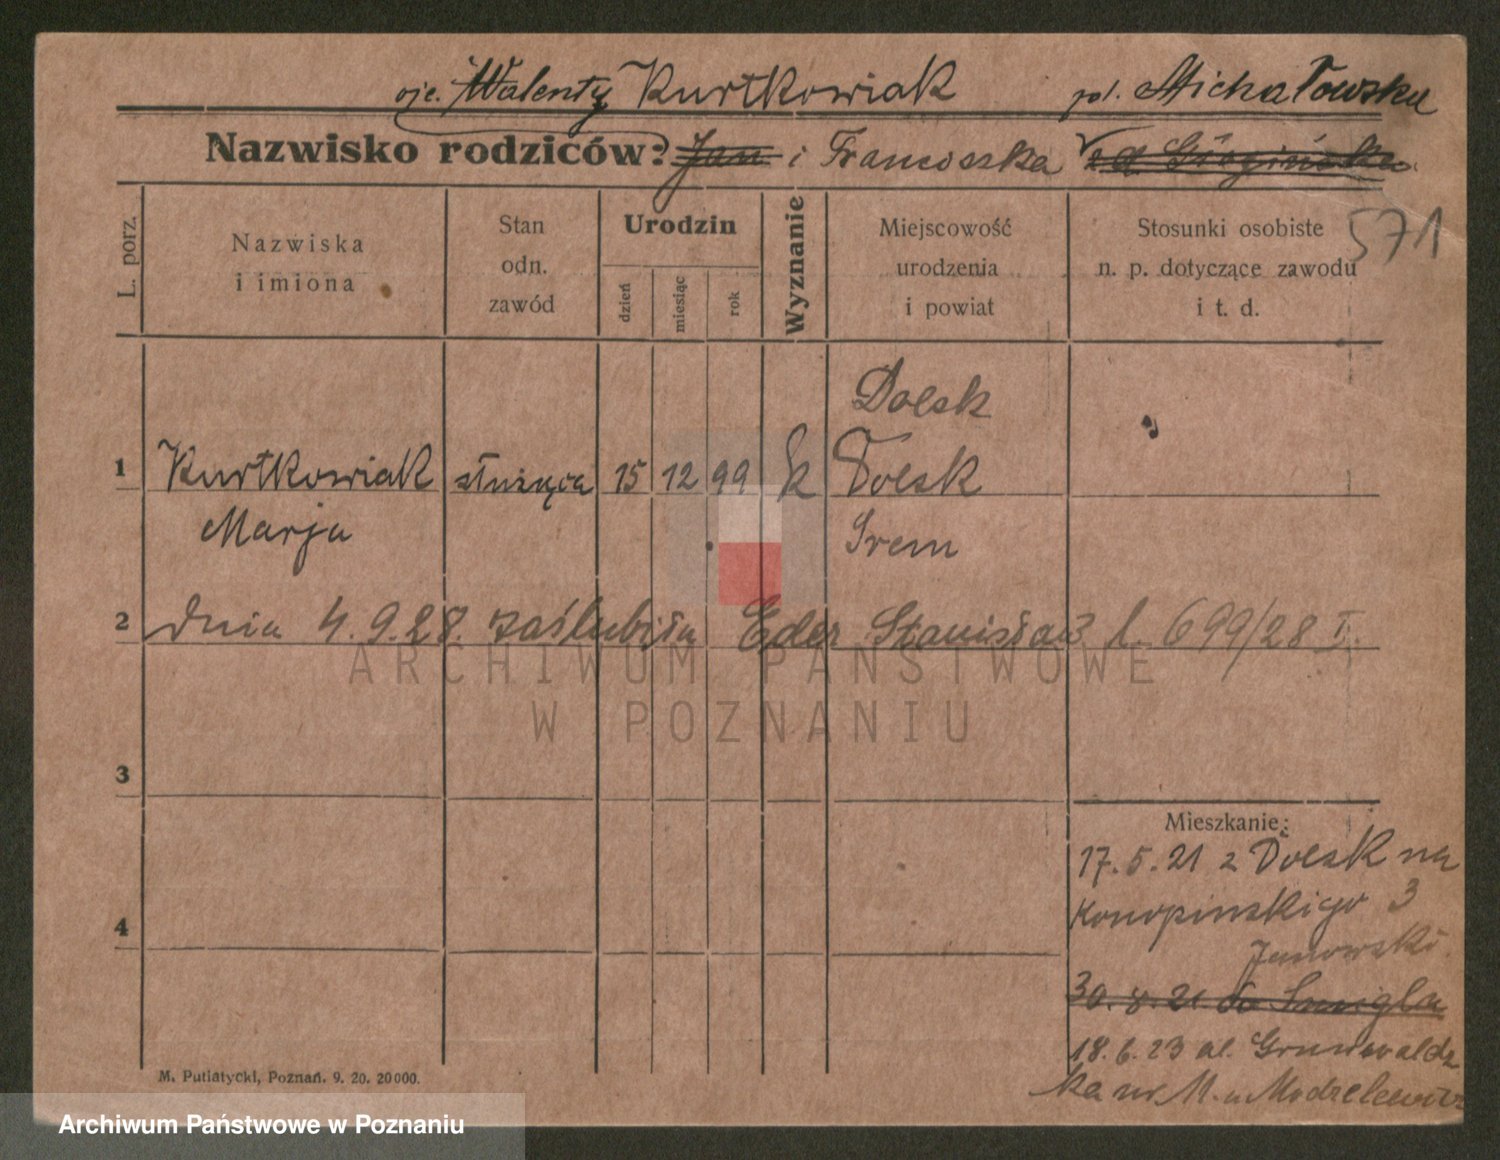 ojc. Walenty Kurtkowiak
Michałowska
Nazwisko rodziców: Jan i Franciszka
571
L. porz.
Nazwiska
i imiona
Stan
odn.
zawód
Urodzin
dzień
miesiąc
rok
Wyznanie
Miejscowość
urodzenia
i powiat
Stosunki osobiste
n. p. dotyczące zawodu
i t. d.
Dolsk
1 Kurtkowiak służąca 15 12 99 k Dolsk
Marja Śrem
2 dnia 4.9.28. zaślubiła Eder Stanisław l. 699/28 I.
ARCHIWUM PAŃSTWOWE
W POZNANIU
3
Mieszkanie:
17.5.21 z Dolsk na
Konopinskiego 3
Janowski
4
30.8.21 do Smigla
18.6.23 al. Grunwaldz
ka nr 11. u Modzelewicz
M. Putiatycki, Poznań. 9. 20. 20000.
Archiwum Państwowe w Poznaniu